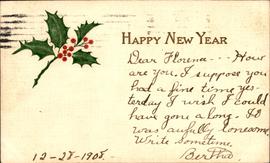 HAPPY NEW YEAR
Dear Florence --- How
are you. I suppose you
had a fine time yes-
terday I wish I could
have gone along. It
was awfully lonesome.
Write sometime.
Bertha
12-28-1905.